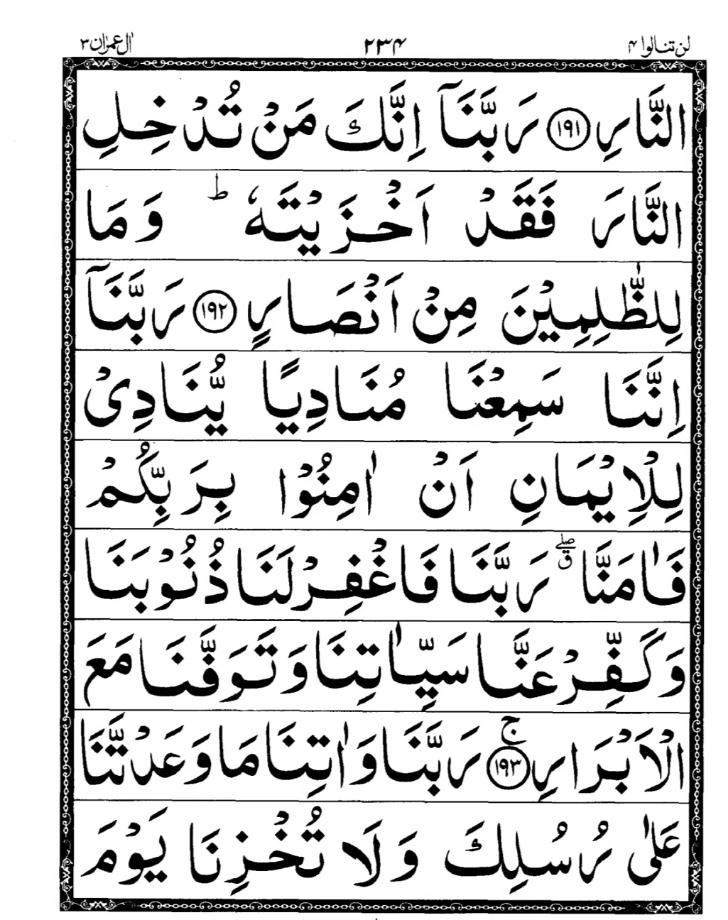 لن تنالوا ۴ ۲۳۴ اٰل عمرٰن ۳
النَّارِ ۝۱۹۱ رَبَّنَاۤ اِنَّكَ مَنْ تُدْخِلِ
النَّارَ فَقَدْ اَخْزَيْتَهٗ ؕ وَمَا
لِلظّٰلِمِيْنَ مِنْ اَنْصَارٍ ۝۱۹۲ رَبَّنَاۤ
اِنَّنَا سَمِعْنَا مُنَادِيًا يُّنَادِىْ
لِلْاِيْمَانِ اَنْ اٰمِنُوْا بِرَبِّكُمْ
فَاٰمَنَّا ۖق رَبَّنَا فَاغْفِرْلَنَا ذُنُوْبَنَا
وَكَفِّرْعَنَّا سَيِّاٰتِنَا وَتَوَفَّنَا مَعَ
الْاَبْرَارِ ۚ‏ ۝۱۹۳ رَبَّنَا وَاٰتِنَا مَا وَعَدْتَّنَا
عَلٰى رُسُلِكَ وَلَا تُخْزِنَا يَوْمَ